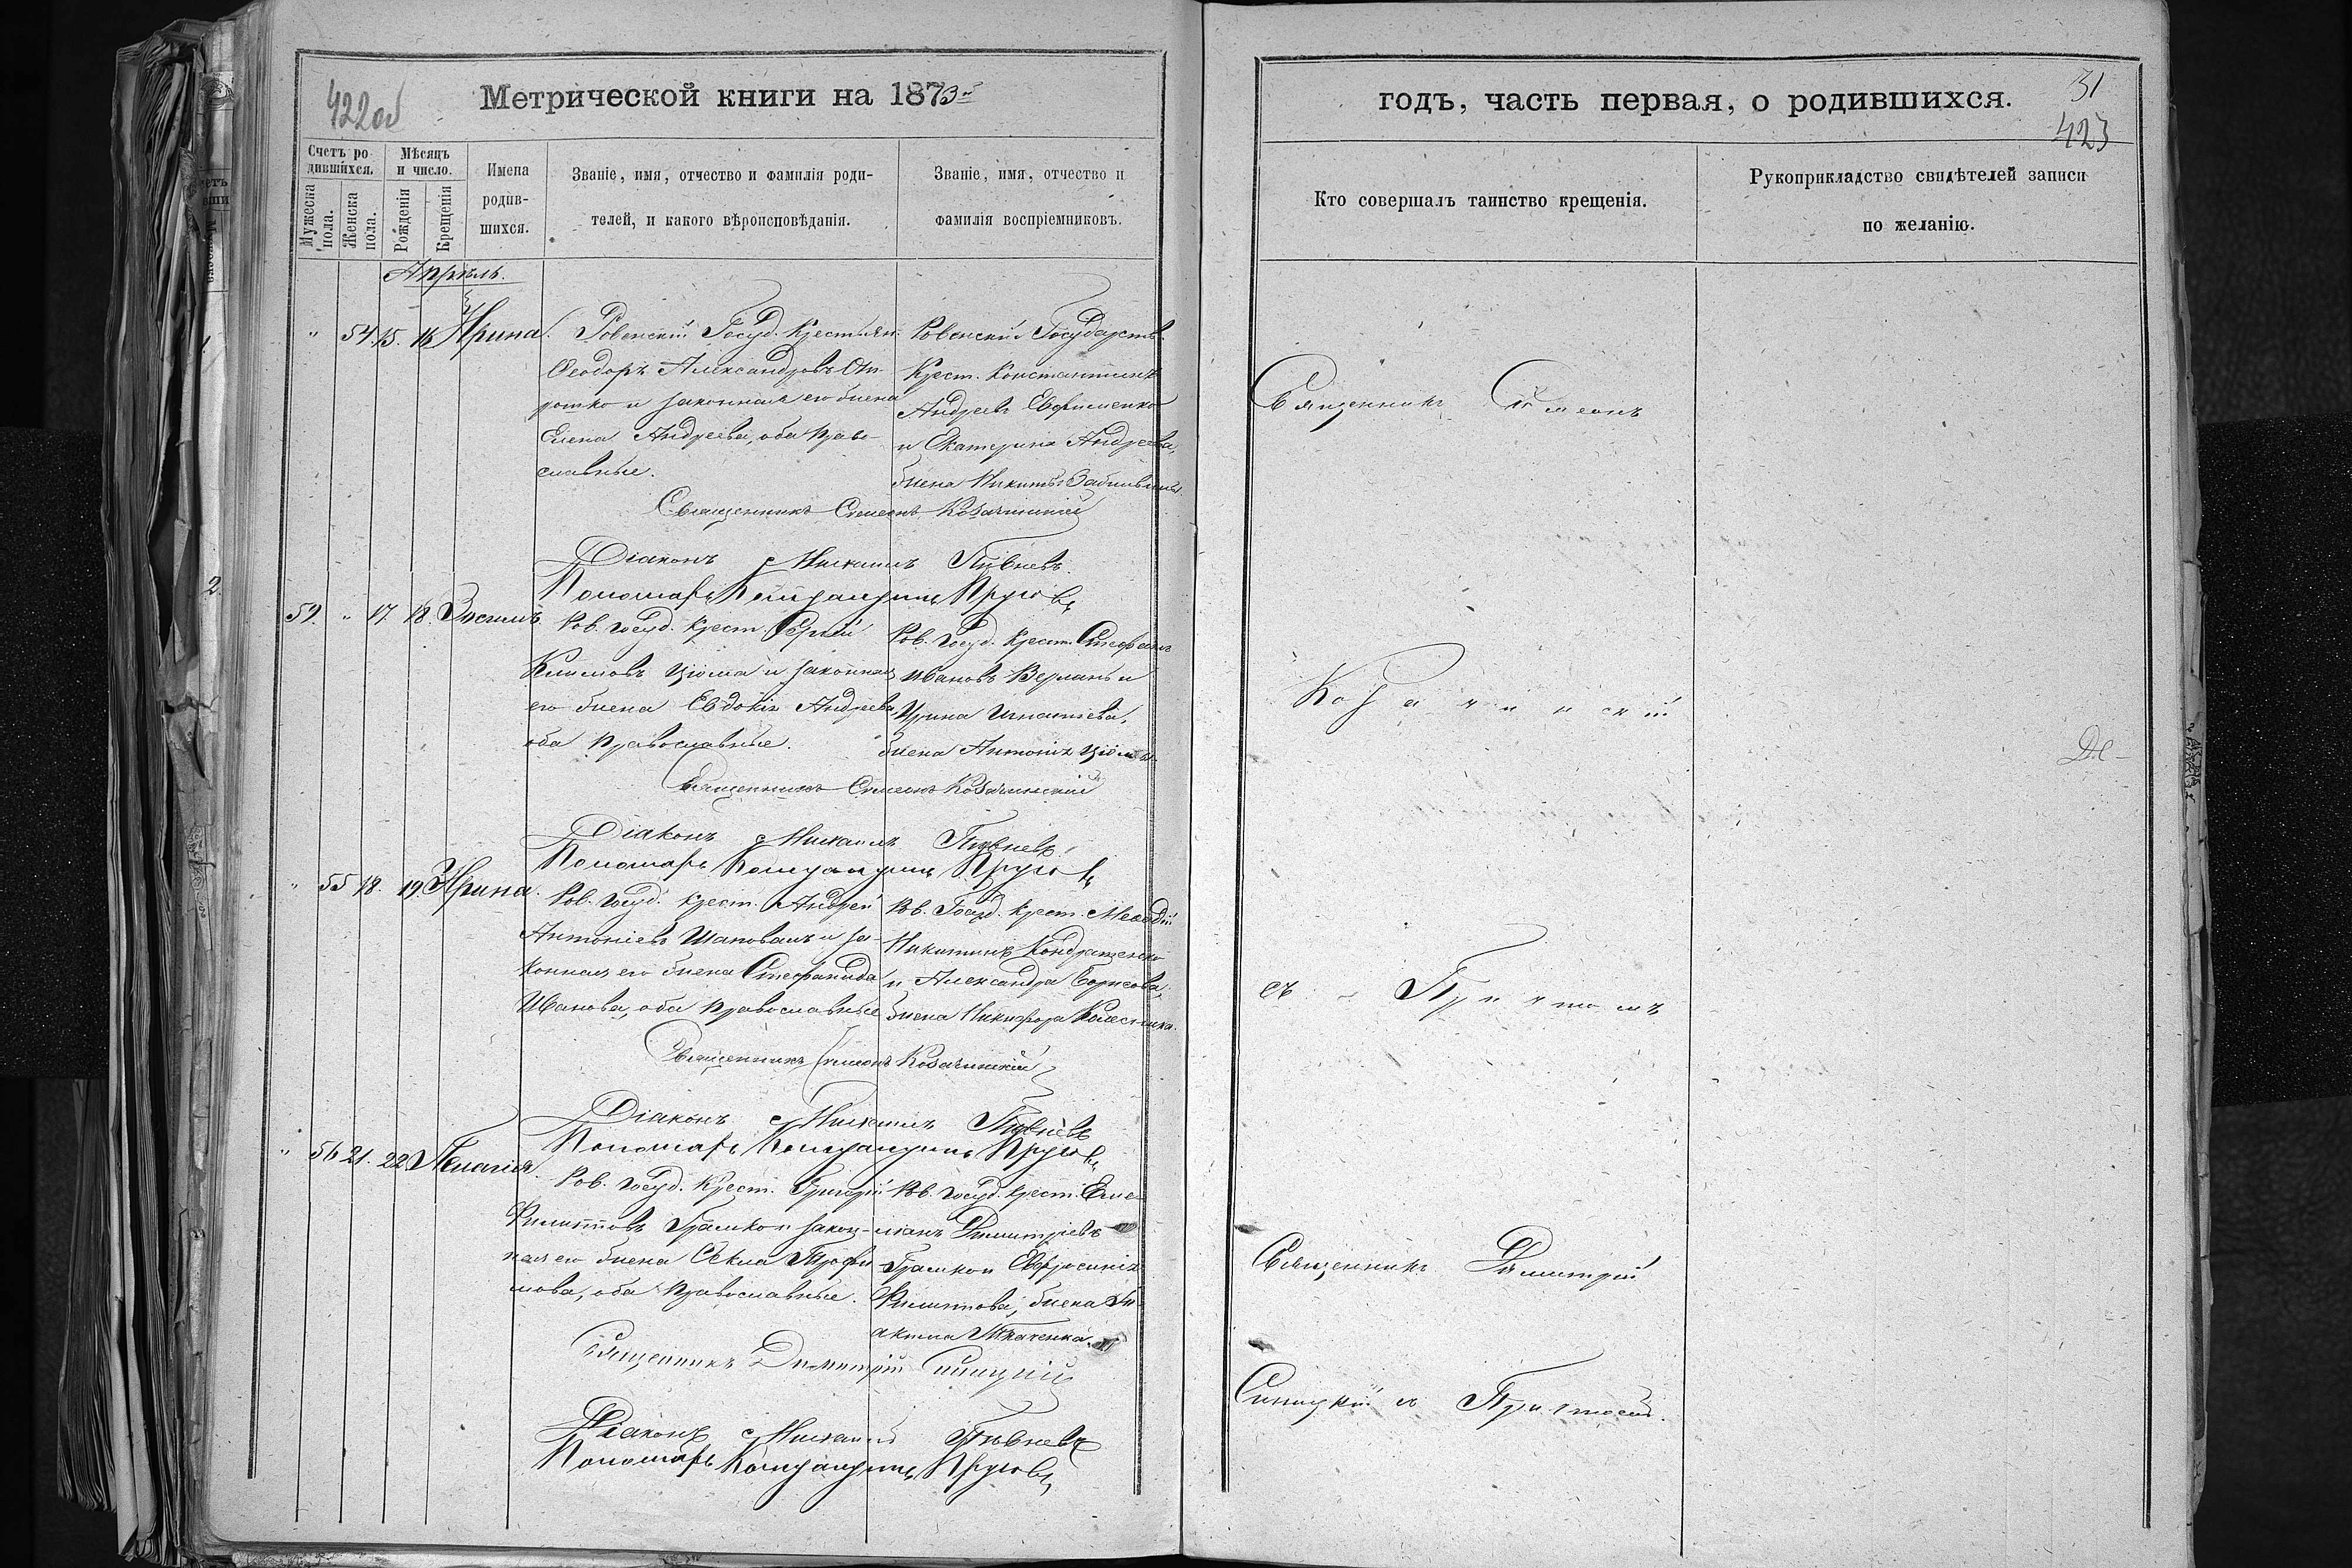 422об
Метрической книги на 1873й
Счетъ ро-
дившихся.
Мѣсяцъ
и число.
Имена
родив-
шихся.
Званіе, имя, отчество и фамилія роди-
телей, и какого вѣроисповѣданія.
Званіе, имя, отчество и
фамилія воспріемниковъ.
Мужеска
пола.
Женска
пола.
Рожденія
Крещенія
Апрѣль.
" 54. 15. 16 Ирина.
Ровенскій Госуд. Крестьян.
Ѳеодоръ Александровъ
и законная его жена
Елена Андреева, оба право-
славные.
Ровенскій Государств.
Крест. Константинъ
Андреевъ Ефименко
и Екатерина Андреева,
жена Никиты
Священникъ Симеонъ Козачинскій
Діаконъ Михаилъ Пивневъ.
Пономарь
59. " 17. 18. Зосимъ
Ров. госуд. крест. Сергій
Климовъ Цюма и законная
его жена Евдокія Андреева,
оба православные.
Ров. Госуд. Крест. Стефанъ
Ивановъ Верланъ и
Ирина Игнатіева,
жена Антонія Цюмы.
Священникъ Симеонъ Козачинскій
Діаконъ Михаилъ Пивневъ.
Пономарь
" 55 18. 19. Ирина.
Ров. госуд. крест. Андрей
Антоніевъ Шаповалъ и за-
конная его жена Стефанида
Иванова, оба православные
Ров. Госуд. Крест. Меѳодій
Никитинъ Кондратенко
и Александра Борисова,
жена Никифора Колесника.
Священникъ Симеонъ Козачинскій
Діаконъ Михаилъ Пивневъ
Пономарь
" 56 21. 22 Пелагія.
Ров. госуд. Крест. Григорій
Филипповъ Грамко и закон-
ная его жена Ѳекла Трофи-
мова, оба православные.
Ров. госуд. крест. Еме-
ліанъ Димитріевъ
Грамко и Евфросинія
Филиппова, жена
Ткаченка.
Священникъ Димитрій Синицкій
Діаконъ Михаилъ Пивневъ
Пономарь
годъ, часть первая, о родившихся.
31
423
Кто совершалъ таинство крещенія.
Рукоприкладство свидѣтелей записи
по желанію.
Священникъ Симеонъ
Козачинскій
съ Причтомъ
Священникъ Димитрій
Синицкій съ Причтомъ.